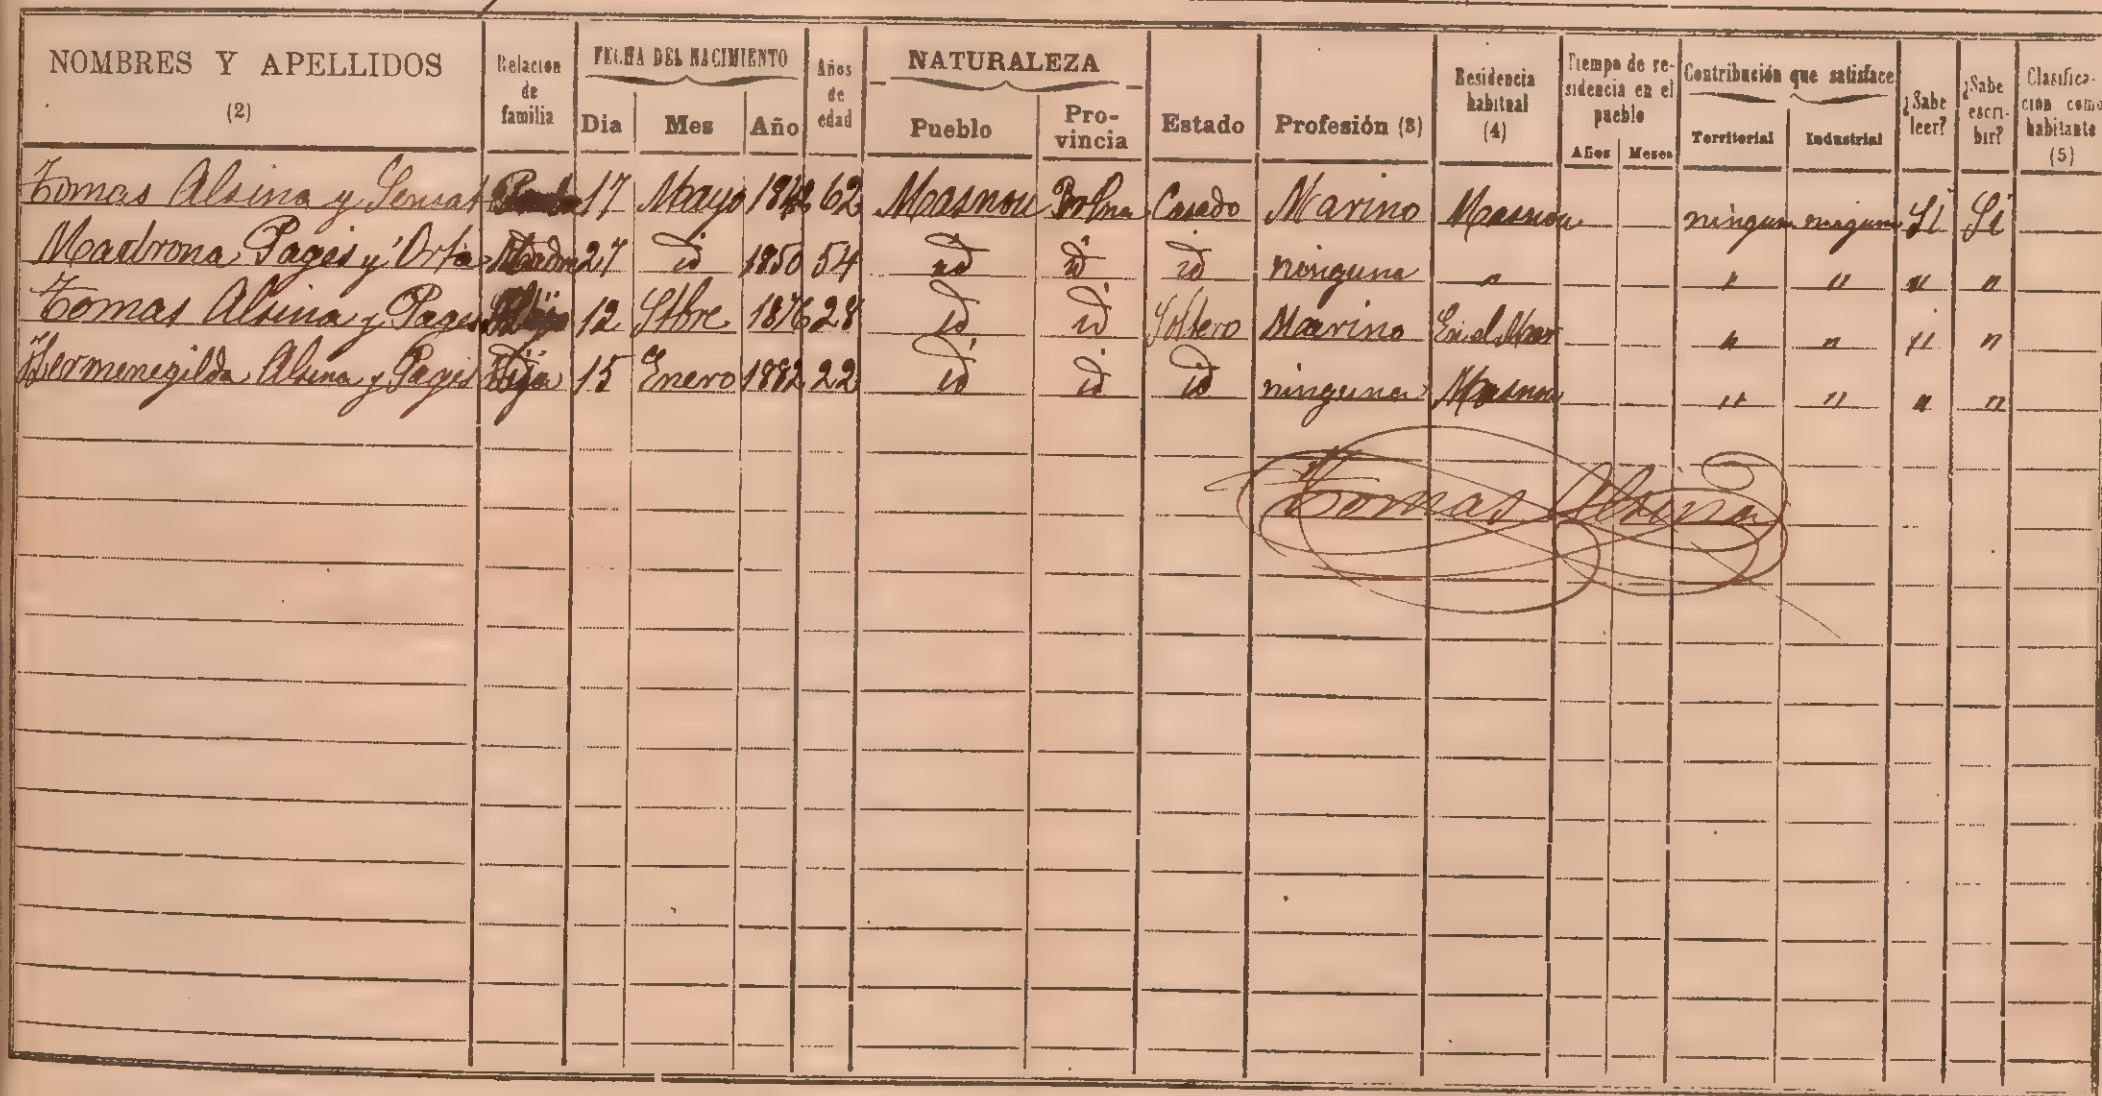 NOMBRES Y APELLIDOS (2) Relación de familia FECHA DEL NACIMIENTO Dia Mes Año Años de edad NATURALEZA Pueblo Provincia Estado Profesión (3) Residencia habitual (4) Tiempo de residencia en el pueblo Años Meses Contribución que satisface Territorial Industrial ¿Sabe leer? ¿Sabe escribir? Clasificación como habitante (5)
Tomas Alsina y Sensat 17 Mayo 1842 62 Masnou Casado Marino Masnou ninguna ninguna Sí Sí
Madrona Pagés y Orta Madre 27 id 1850 54 id id id ninguna " " " " "
Tomas Alsina y Pages Hijo 12 Stbre 1876 28 id id Soltero Marino En el Mar " " " "
Hermenegilda Alsina y Pages Hija 15 Enero 1882 22 id id id ninguna Masnou " " " "
Tomas Alsina